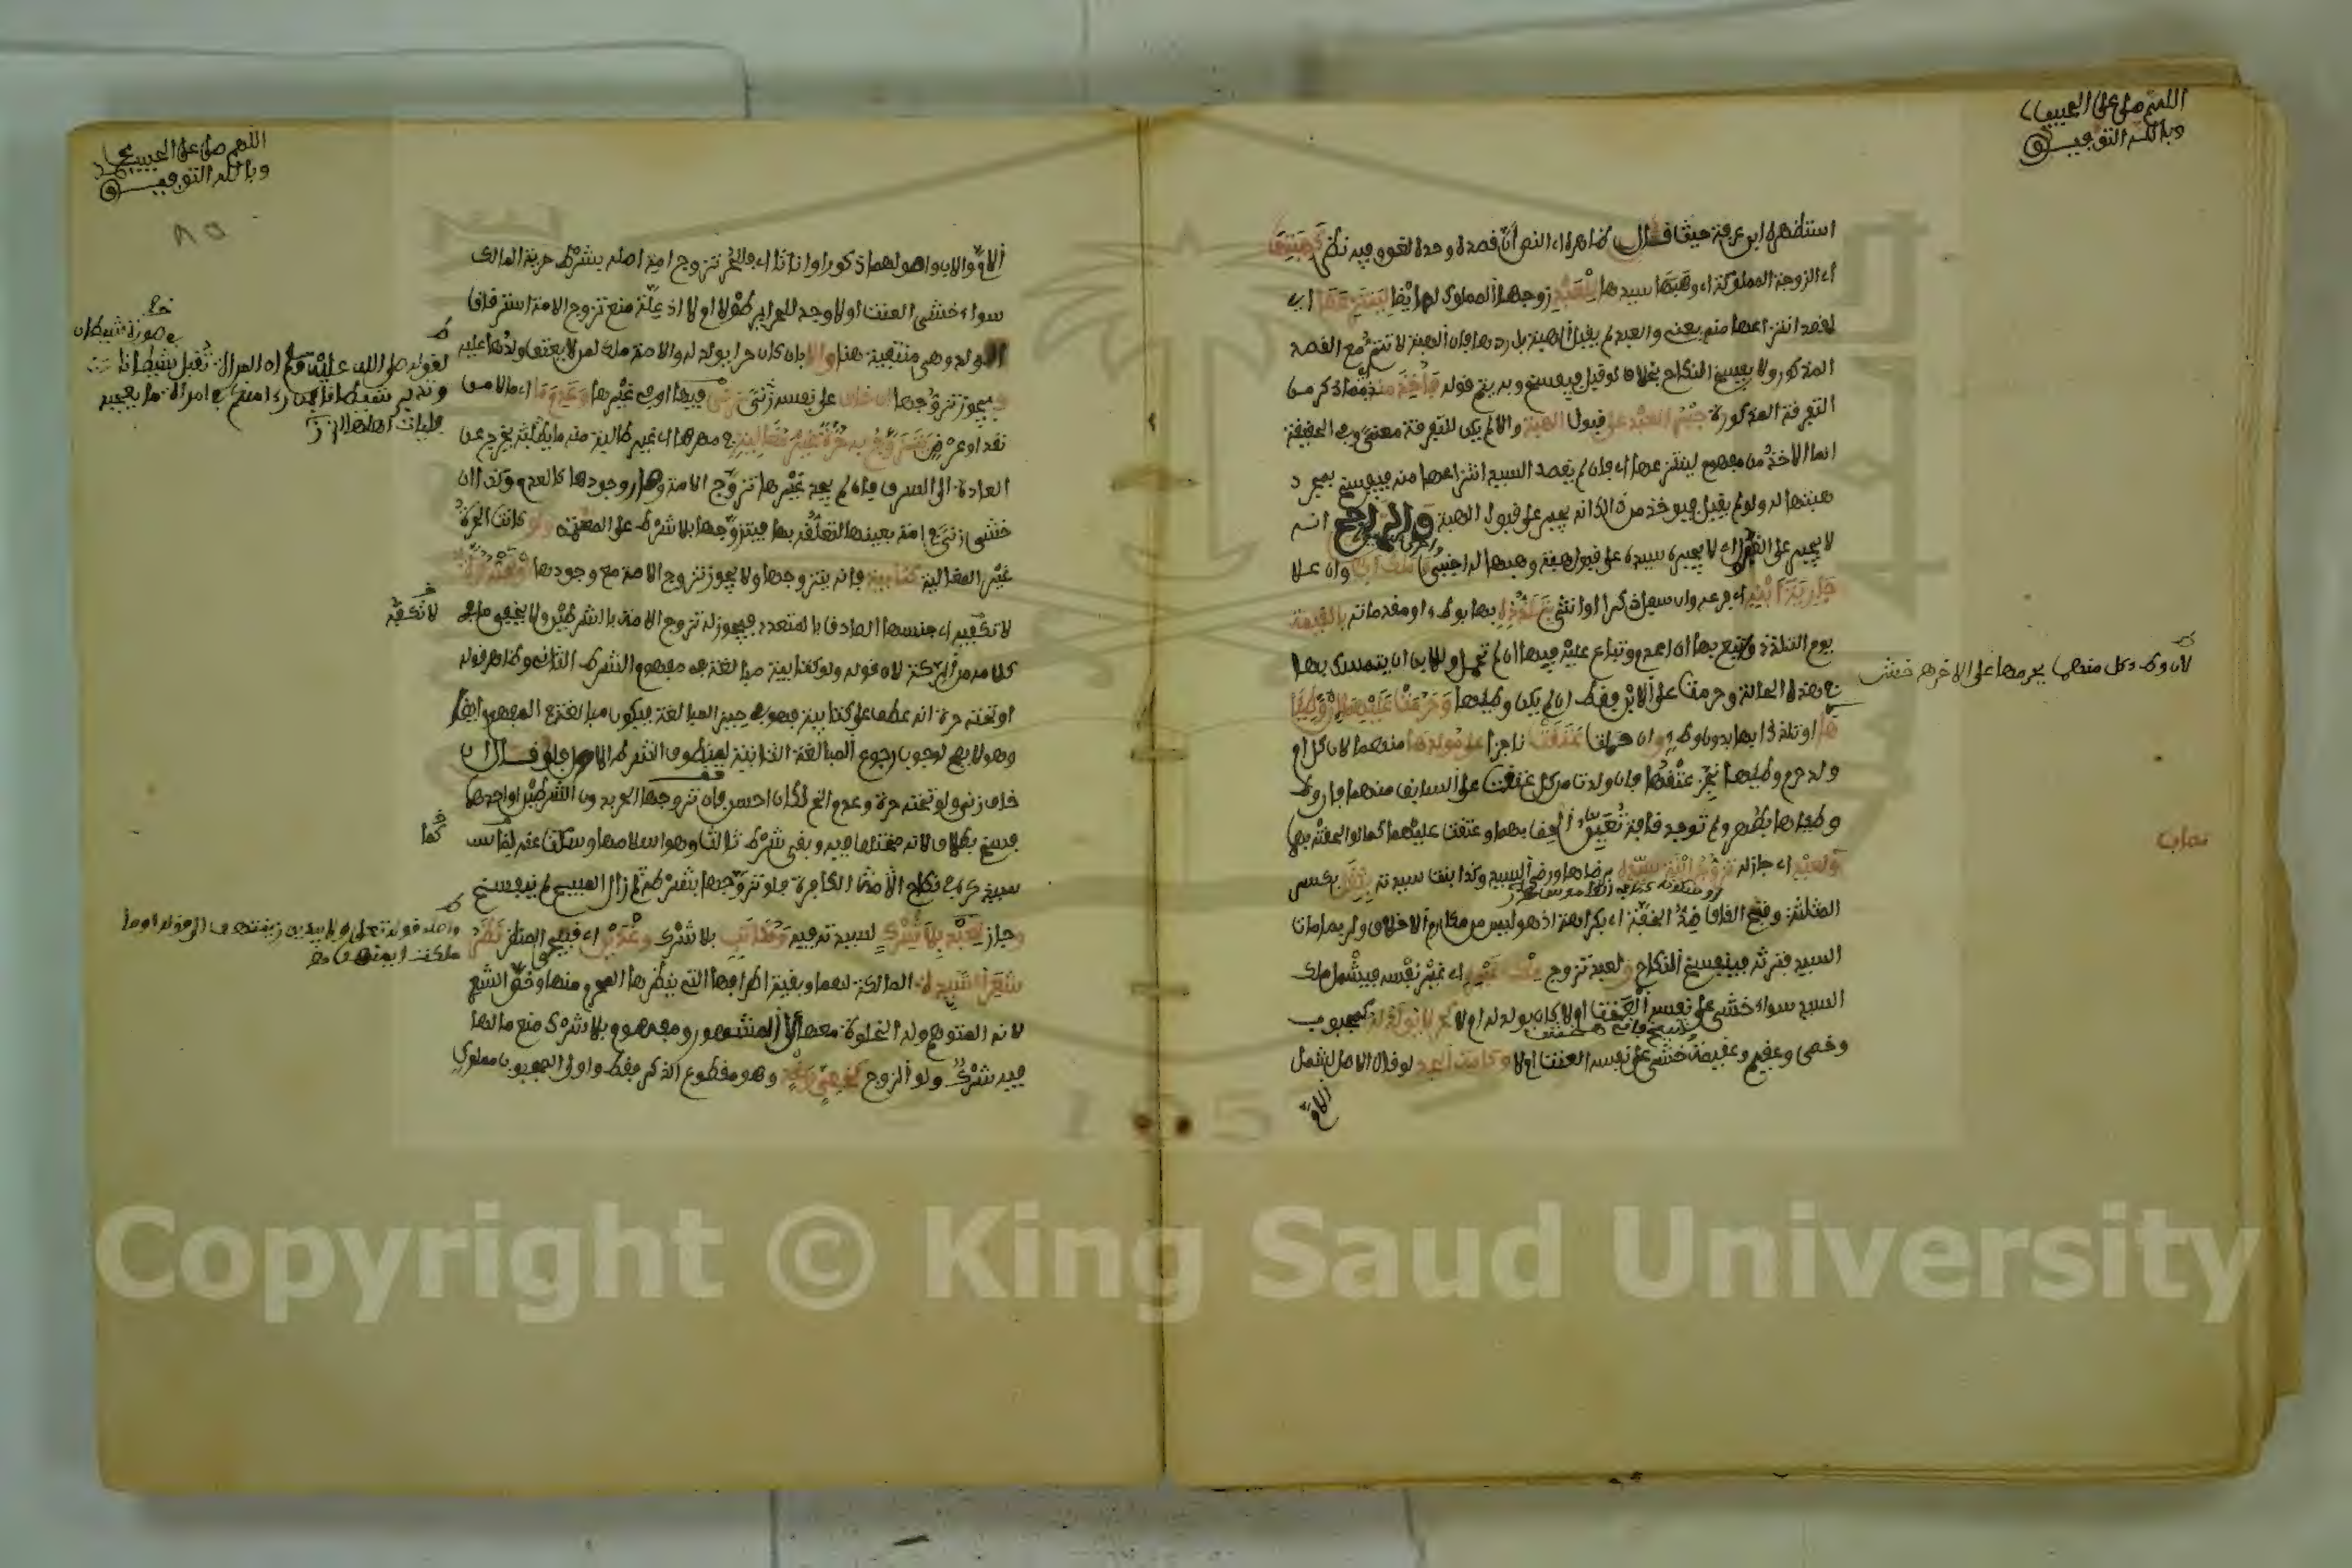 اللهم صل على الحبيب
وبالله التوفيق
استظهره ابن عرفة حيث قال ظاهر النص أن قصده وحده لغو وفيه نظر كهبتها
أي الزوجة المملوكة أي وهبها سيدها للعبد زوجها المملوك له أيضا لينتزعها أي
لقصد انتزاعها منه يعني والعبد لم يقبل الهبة بل ردها فإن الهبة لا تتم مع القصد
المذكور ولا يفسخ النكاح بخلاف لو قبل فيفسخ وبه يتم قوله فأخذ منه مما ذكر من
التفرقة المذكورة جبر العبد على قبول الهبة وإلا لم يكن للتفرقة معنى وفي الحقيقة
إنما الأخذ من مفهوم لينتزعها أي فإن لم يقصد السيد انتزاعها منه فيفسخ بمجرد
هبتها له ولو لم يقبل فيؤخذ من ذلك أنه يجبر على قبول الهبة والراجح أنه
لا يجبر على القبول أي لا يجبره سيده على قبول هبة وهبها له أجنبي وملك أب وإن علا
جارية ابنه أي فرعه وإن سفل ذكرا أو أنثى بتلذذه بها بوطء أو مقدماته بالقيمة
يوم التلذذ وتبع بها إن أعدم وتباع عليه فيها إن لم تحمل وللابن أن يتمسك بها
في هذه الحالة وحرمت على الابن فقط إن لم يكن وطئها وحرمت عليهما إن وطئا
ها أو تلذذا بها بدون وطء وإن حملت عتقت ناجزا على مولدها منهما لأن كل أم
ولد حرم وطئها نجز عتقها فإن ولدت من كل عتقت على السابق منهما فإن وط
وطئاها بطهر ولم توجد قافة تعين ألحق بهما وعتقت عليهما كما لو ألحقته بهما
ولعبد أي جاز له تزوج ابنة سيده برضاها ورضى السيد وكذا بنت سيدته بثقل بكسر
المثلثة وفتح القاف ضد الخفة أي بكراهة إذ هو ليس من مكارم الأخلاق ولربما مات
السيد فترثه فينفسخ النكاح ولعبد تزوج ملك غيره أي غير نفسه فيشمل ملك
السيد سواء خشي على نفسه العنت أو لا كان يولد له أو لا كحر لا يولد له كمجبوب
وخصي وعقيم وعقيمة خشي على نفسه العنت أو لا وكأمة الجد لو قال الأصل ليشمل
الأم
لأن وطء كل منهما يحرمها على الآخر خش
اللهم صل على الحبيب محمد
وبالله التوفيق
٨٥
الأم والأب وأصولهما ذكورا وإناثا أي فللحر تزوج أمة أصله بشرط حرية المالك
سواء خشي العنت أو لا وجد للحراير طولا أو لا إذ علة منع تزوج الأمة استرقاق
الولد وهي منتفية هنا وإلا بأن كان حرا يولد له والأمة ملك لمن لا يعتق ولدها عليه
فيجوز تزوجها إن خاف على نفسه زنى فيها أو في غيرها وعدم ما أي مالا من
نقد أو عرض يتزوج به حرة غير مغالية في مهرها أي غير طالبة منه ما يخرج عن
العادة إلى السرف فإن لم يجد غيرها تزوج الأمة وصار وجودها كالعدم وكذا إن
خشي زنى في أمة بعينها لتعلقه بها فيتزوجها بلا شرط على المعتمد ولو كانت الحرة
غير المغالية كتابية فإنه يتزوجها ولا يجوز تزوج الأمة مع وجودها أو تحته حرة
لا تكفيه أي جنسها الصادق بالمتعدد فيجوز له تزوج الأمة بالشرطين ولا يخفى ما في
كلامه من الركة لأن قوله ولو كتابية مبالغة في مفهوم الشرط الثاني وظاهر قوله
أو تحته حرة أنه عطف على كتابية فهو في حيز المبالغة فيكون مبالغة في المفهوم أيضا
وهو لا يصح لوجوب رجوع المبالغة الثانية لمنطوق الشرط الأصل فلو قال إن
خاف زنى ولو تحته حرة وعدم الخ لكان أحسن فإن تزوجها الحر بدون الشرطين أو أحدهما
فسخ بطلاق لأنه مختلف فيه وبقي شرط ثالث وهو إسلامها وسكت عنه لما سـ
سيذكره في نكاح الأمة الكافرة فلو تزوجها بشرطه ثم زال المبيح لم ينفسخ
وجاز لعبد بلا شرك لسيدته فيه ومكاتب بلا شرك وغدين أي قبيحي المنظر نظر
شعر السيدة المالكة لهما وبقية أطرافها التي ينظرها المحرم منها وخص الشعر
لأنه المتوهم وله الخلوة معها على المشهور ومفهوم بلا شرك منع ما لها
فيه شرك ولو الزوج كخصي وغد وهو مقطوع الذكر فقط وأولى المجبوب مملوك
لقوله صلى الله عليه وسلم إن المرأة تقبل شيطانا
في صورة شيطان
وتدبر شيطانا فإذا رأى أحدكم امرأة ما يعجبه
فليأت أهله
لا تكفه
كما
وأصله قوله تعالى ولا يبدين زينتهن إلى قوله أو ما
ملكت أيمانهن